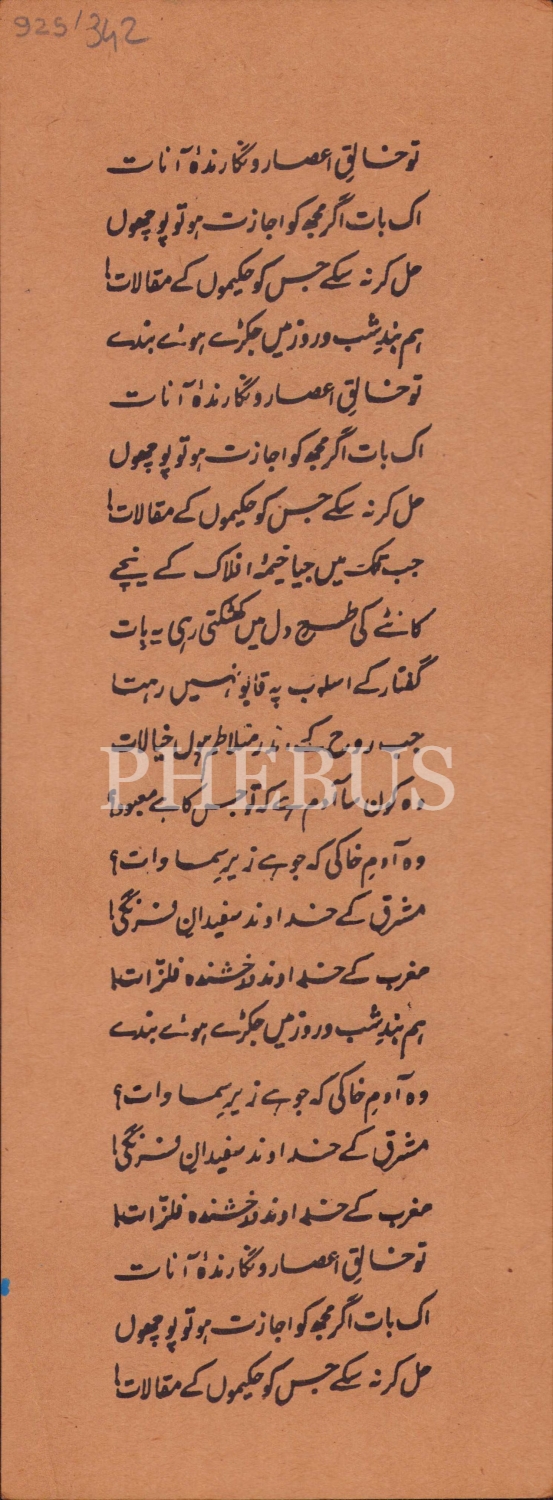 929/342
تو خالقِ اعصار و نگارندۂ آنات
اک بات اگر مجھ کو اجازت ہو تو پوچھوں
حل کر نہ سکے جس کو حکیموں کے مقالات!
ہم بندِ شب و روز میں جکڑے ہوئے بندے
تو خالقِ اعصار و نگارندۂ آنات
اک بات اگر مجھ کو اجازت ہو تو پوچھوں
حل کر نہ سکے جس کو حکیموں کے مقالات!
جب تک میں جیا خیمۂ افلاک کے نیچے
کانٹے کی طرح دل میں کھٹکتی رہی یہ بات
گفتار کے اسلوب پہ قابو نہیں رہتا
جب روح کے اندر متلاطم ہوں خیالات
PHEBUS
وہ کون سا آدم ہے کہ تو جس کا ہے معبود؟
وہ آدمِ خاکی کہ جو ہے زیرِ سماوات؟
مشرق کے خداوند سفیدانِ فرنگی!
مغرب کے خداوند درخشندہ فلزّات!
ہم بندِ شب و روز میں جکڑے ہوئے بندے
وہ آدمِ خاکی کہ جو ہے زیرِ سماوات؟
مشرق کے خداوند سفیدانِ فرنگی!
مغرب کے خداوند درخشندہ فلزّات!
تو خالقِ اعصار و نگارندۂ آنات
اک بات اگر مجھ کو اجازت ہو تو پوچھوں
حل کر نہ سکے جس کو حکیموں کے مقالات!